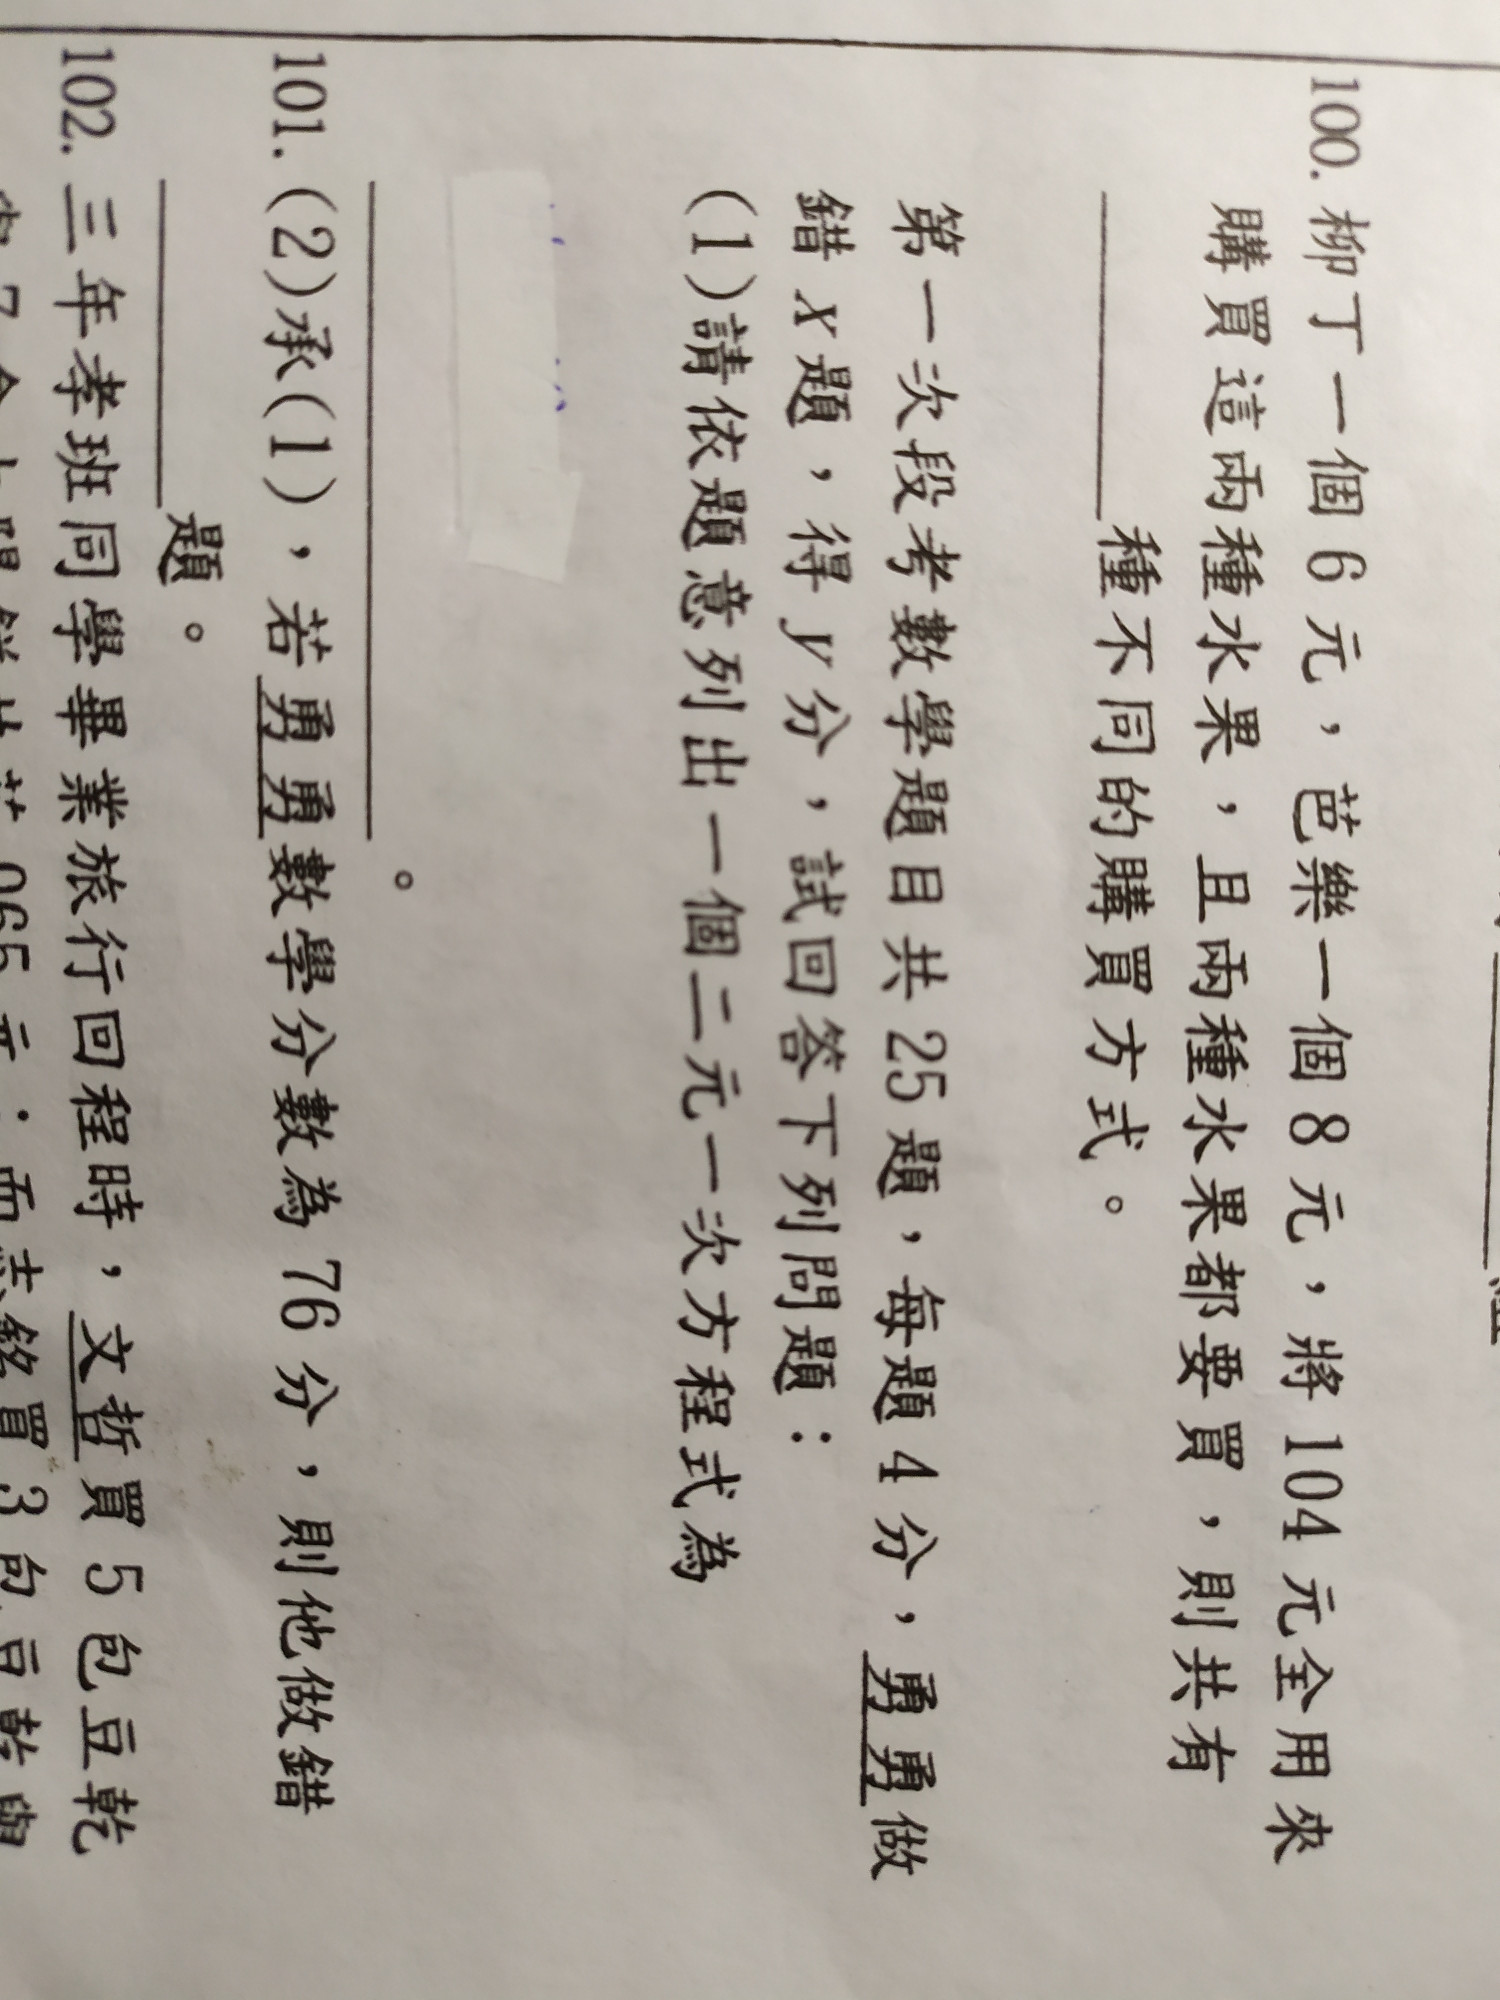 100. 柳丁一個 6 元，芭樂一個 8 元，將 104 元全用來
購買這兩種水果，且兩種水果都要買，則共有
種不同的購買方式。
第一次段考數學題目共 25 題，每題 4 分，勇勇做
錯 x 題，得 y 分，試回答下列問題：
(1)請依題意列出一個二元一次方程式為
。
101. (2)承(1)，若勇勇數學分數為 76 分，則他做錯
題。
102. 三年孝班同學畢業旅行回程時，文哲買 5 包豆乾